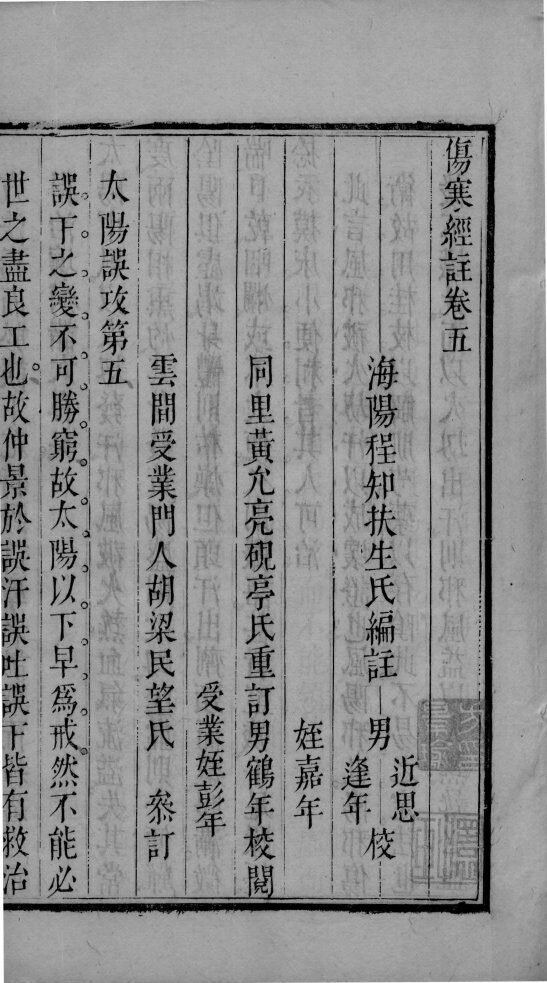 傷寒經註卷五
海陽程知扶生氏編註 男近思逢年校
姪嘉年
同里黃允亮硯亭氏重訂男鶴年校閱
受業姪彭年
雲間受業門人胡梁民望氏 叅訂
太陽誤攻第五
誤下之變不可勝窮故太陽以下早爲戒然不能必
世之盡良工也故仲景於誤汗誤吐誤下皆有救治